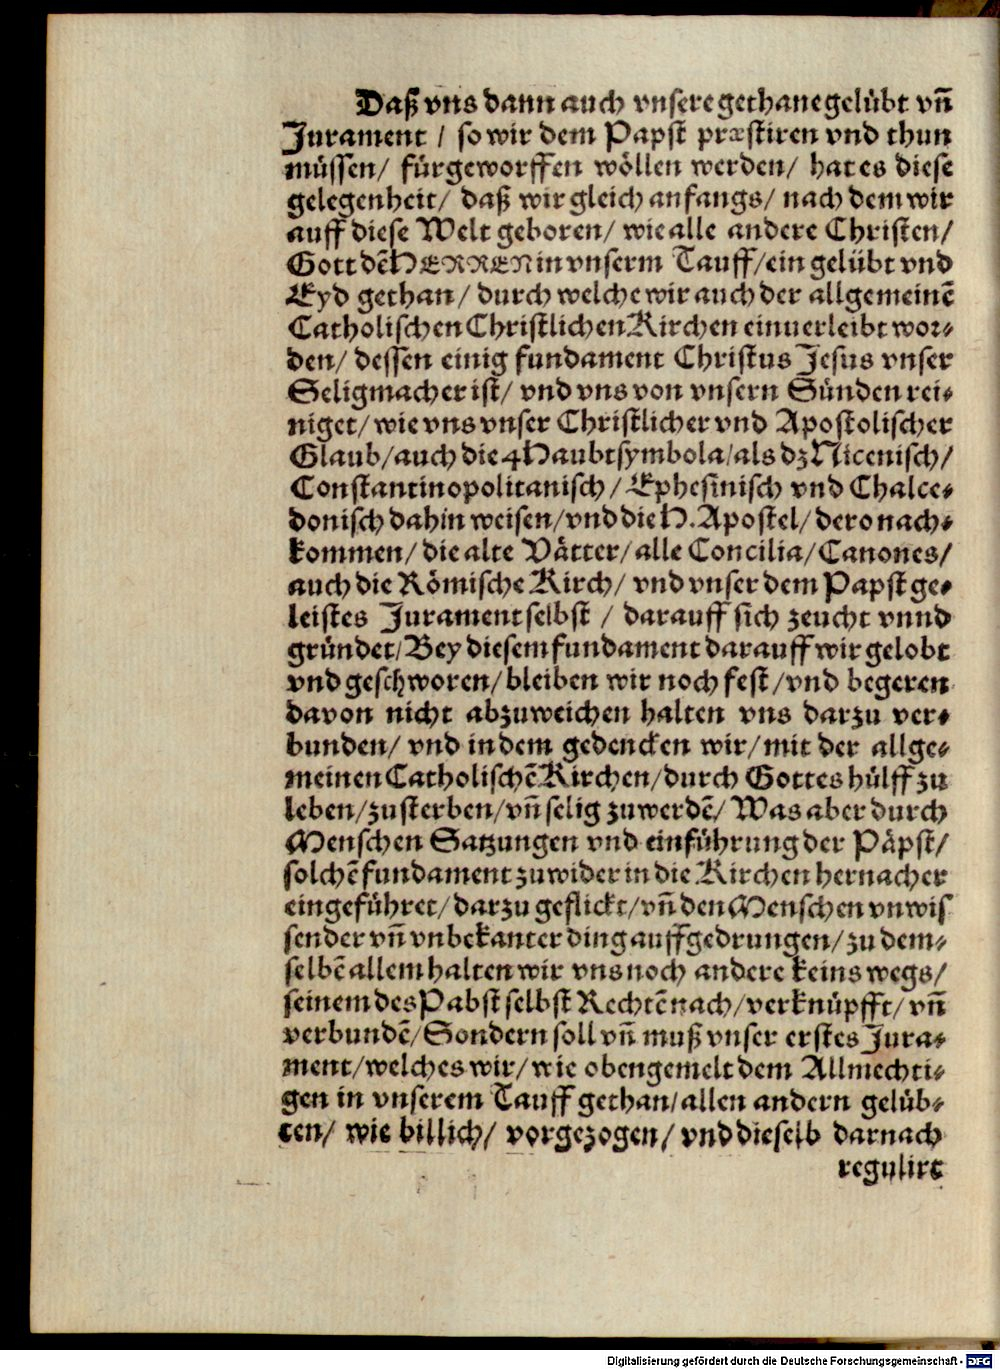 Daß vns dann auch vnsere gethane gelübt vñ
Jurament / so wir dem Papst præstiren vnd thun
müssen/ fürgeworffen wöllen werden/ hat es diese
gelegenheit/ daß wir gleich anfangs/ nach dem wir
auff diese Welt geboren/ wie alle andere Christen/
Gott dẽ HERREN in vnserm Tauff/ein gelübt vnd
Eyd gethan/ durch welche wir auch der allgemeinẽ
Catholischen Christlichen Kirchen einuerleibt wor-
den/ dessen einig fundament Christus Jesus vnser
Seligmacher ist/ vnd vns von vnsern Sünden rei-
niget/ wie vns vnser Christlicher vnd Apostolischer
Glaub/auch die 4 Haubtsymbola/als dz Nicenisch/
Constantinopolitanisch/ Ephesinisch vnd Chalce-
donisch dahin weisen/vnd die H. Apostel/ dero nach-
kommen/ die alte Vätter/ alle Concilia/ Canones/
auch die Römische Kirch/ vnd vnser dem Papst ge-
leistes Jurament selbst / darauff sich zeucht vnnd
gründet/ Bey diesem fundament darauff wir gelobt
vnd geschworen/ bleiben wir noch fest/vnd begeren
davon nicht abzuweichen halten vns darzu ver-
bunden/ vnd in dem gedencken wir/ mit der allge-
meinen Catholischẽ Kirchen/durch Gottes hülff zu
leben/zu sterben/vñ selig zu werdẽ/ Was aber durch
Menschen Satzungen vnd einführung der Päpst/
solchẽ fundament zuwider in die Kirchen hernacher
eingeführet/ darzu geflickt/vñ den Menschen vnwis
sender vñ vnbekanter ding auffgedrungen/ zu dem-
selbẽ allem halten wir vns noch andere keins wegs/
seinem des Pabst selbst Rechtẽ nach/verknüpfft/ vñ
verbundẽ/ Sondern soll vñ muß vnser erstes Jura-
ment/welches wir/ wie obengemelt dem Allmechti-
gen in vnserem Tauff gethan/allen andern gelüb-
ten/ wie billich/ vorgezogen/ vnd dieselb darnach
regulirt
Digitalisierung gefördert durch die Deutsche Forschungsgemeinschaft - DFG